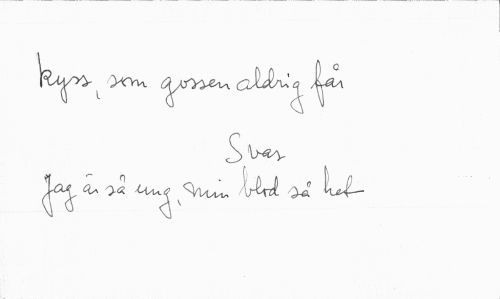 kyss, som gossen aldrig får
Svar
Jag är så ung, min blod så het